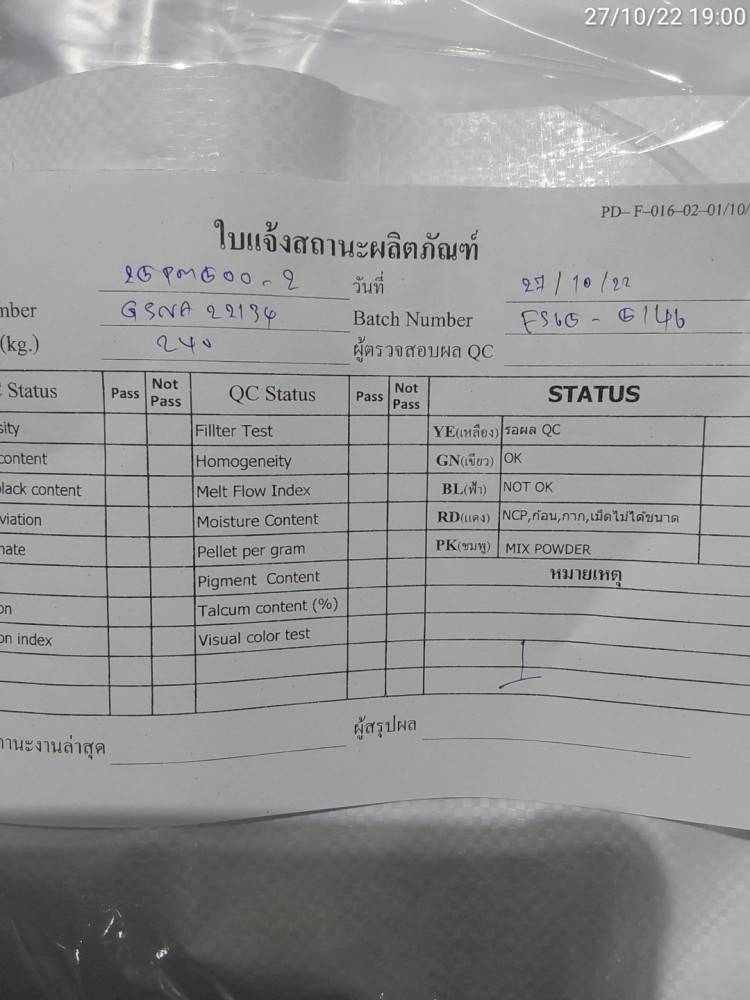 27/10/22 19:00
PD-F-016-02-01/10/
ใบแจ้งสถานะผลิตภัณฑ์
วันที่ 27/10/22
mber GSNA 22134 Batch Number
(kg.) 240 ผู้ตรวจสอบผล QC
Status Pass Not Pass QC Status Pass Not Pass STATUS
sity Fillter Test YE(เหลือง) รอผล QC
content Homogeneity GN(เขียว) OK
lack content Melt Flow Index BL(ฟ้า) NOT OK
viation Moisture Content RD(แดง) NCP,ก้อน,กาก,เม็ดไม่ได้ขนาด
nate Pellet per gram PK(ชมพู) MIX POWDER
Pigment Content หมายเหตุ
on Talcum content (%)
on index Visual color test
านะงานล่าสุด ผู้สรุปผล